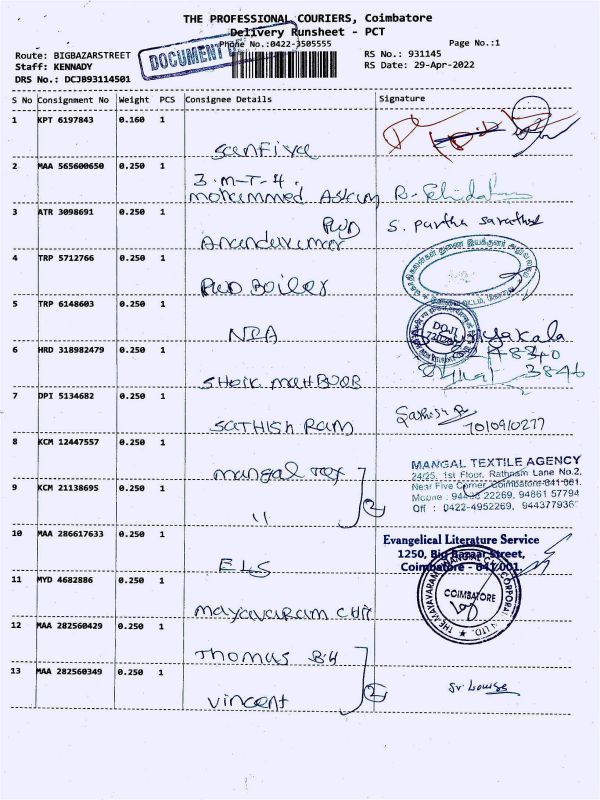 THE PROFESSIONAL COURIERS, Coimbatore
Delivery Runsheet - PCT
DOCUMENT
Phone No.:0422-3505555
Page No.:1
Route: BIGBAZARSTREET
RS No.: 931145
Staff: KENNADY
RS Date: 29-Apr-2022
DRS No.: DCJB93114501
S No Consignment No Weight PCS Consignee Details Signature
1 KPT 6197843 0.160 1
Sanfiya
2 MAA 565600650 0.250 1
3-M-T-4.
mohammed
3 ATR 3098691 0.250 1
S. Partha Sarathy
PWD
Anandakumar
4 TRP 5712766 0.250 1
PWD Boiler
5 TRP 6148603 0.250 1
NIA
6 HRD 318982479 0.250 1
3846
Sheik mahBOOB
7 DPI 5134682 0.250 1
Sathish R
SATHISH RAM
8 KCM 12447557 0.250 1
mangal Tex
MANGAL TEXTILE AGENCY
24/25, 1st Floor, Rathnam Lane No.2,
Near Five Corner, Coimbatore-641 001.
Mobile : 94438 22269, 94861 57794
Off : 0422-4952269, 944377936
9 KCM 21138695 0.250 1
11
2
10 MAA 286617633 0.250 1
ELS
Evangelical Literature Service
1250, Big Bazaar Street,
Coimbatore - 641 001.
11 MYD 4682886 0.250 1
mayavaram chit
COIMBATORE
12 MAA 282560429 0.250 1
Thomas
13 MAA 282560349 0.250 1
2
vincent